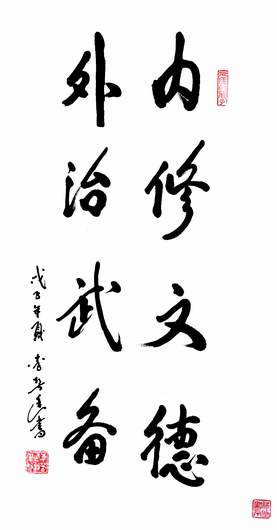 内修文德
外治武备
戊子年夏